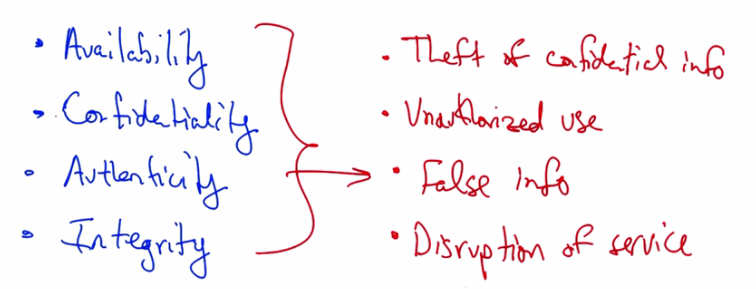 • Availability
• Confidentiality
• Authenticity
• Integrity
• Theft of confidential info
• Unauthorized use
• False info
• Disruption of service